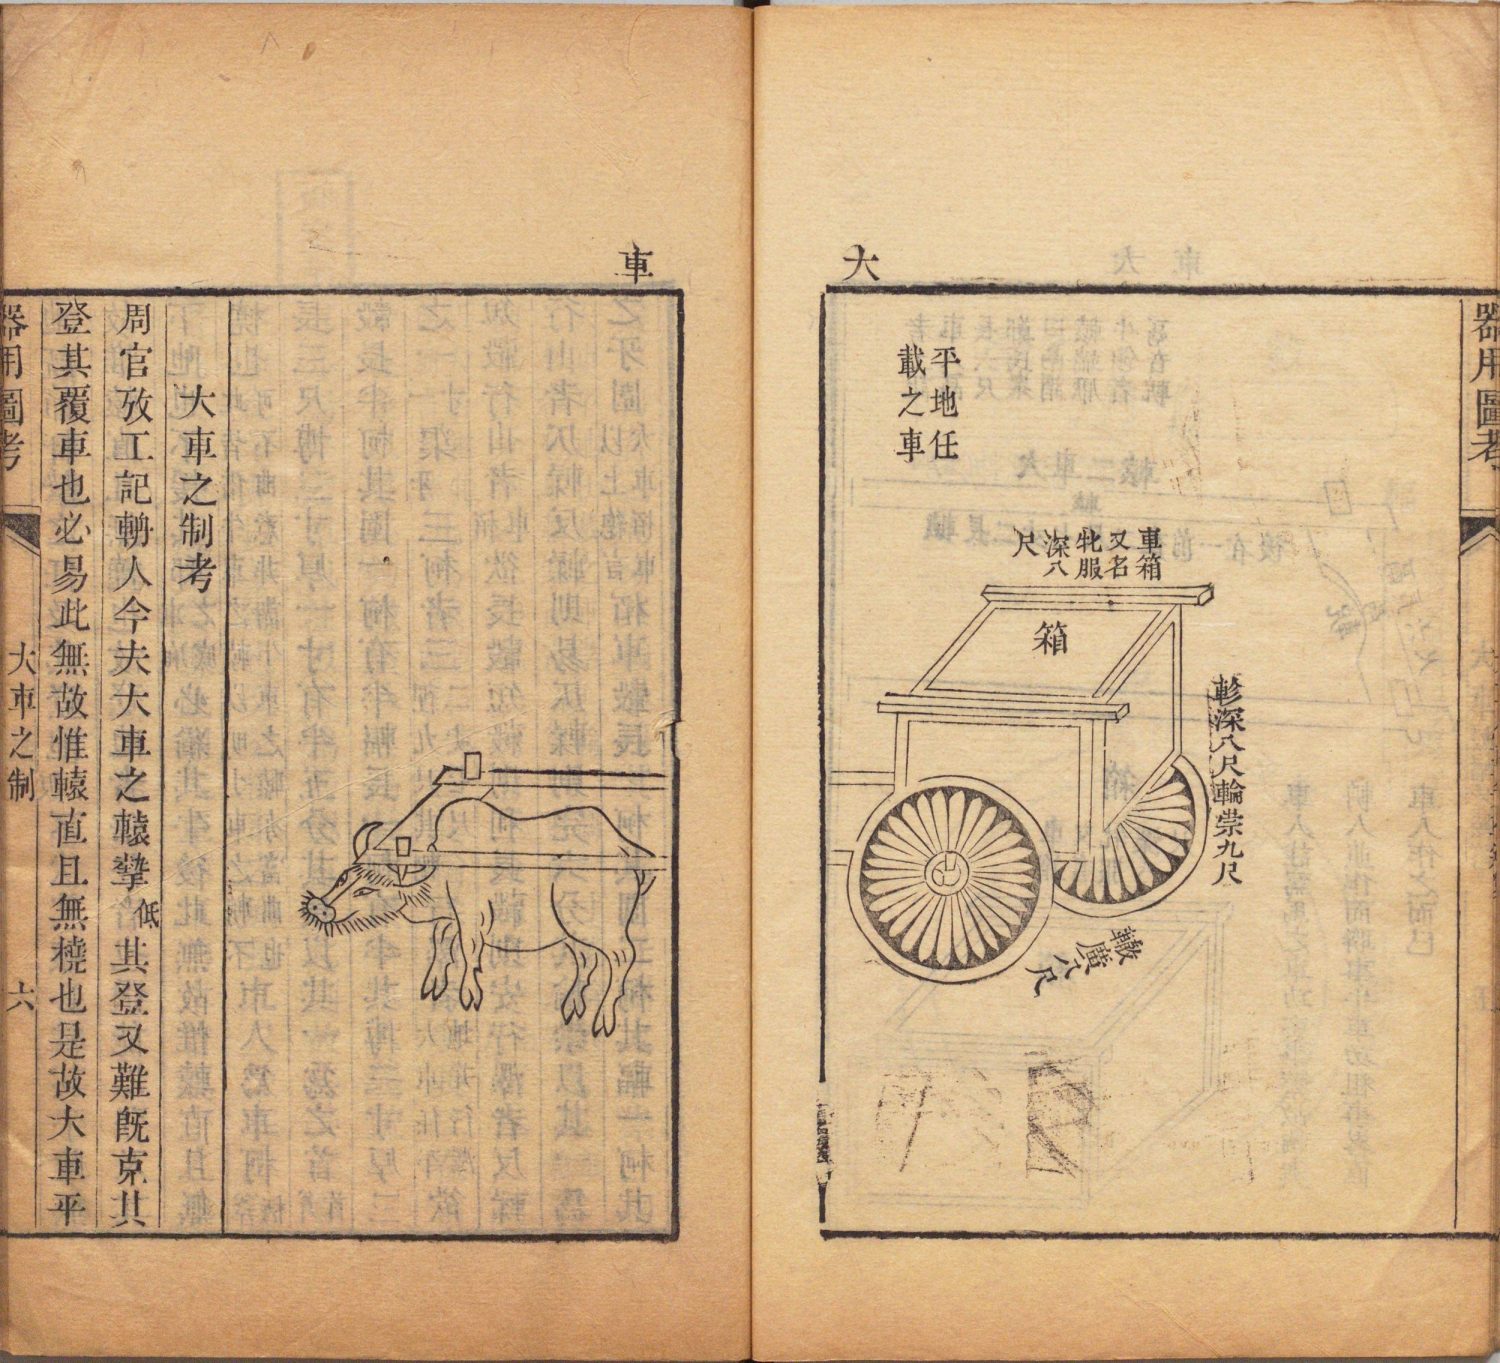 器用圖考
大
平地任
載之車
車箱
又名
牝服
深八
尺
箱
軫深八尺輪崇九尺
轍廣八尺
車
大車之制考
周官攷工記輈人今夫大車之轅摯低其登又難旣克其
登其覆車也必易此無故惟轅直且無橈也是故大車平
器用圖考
大車之制
六